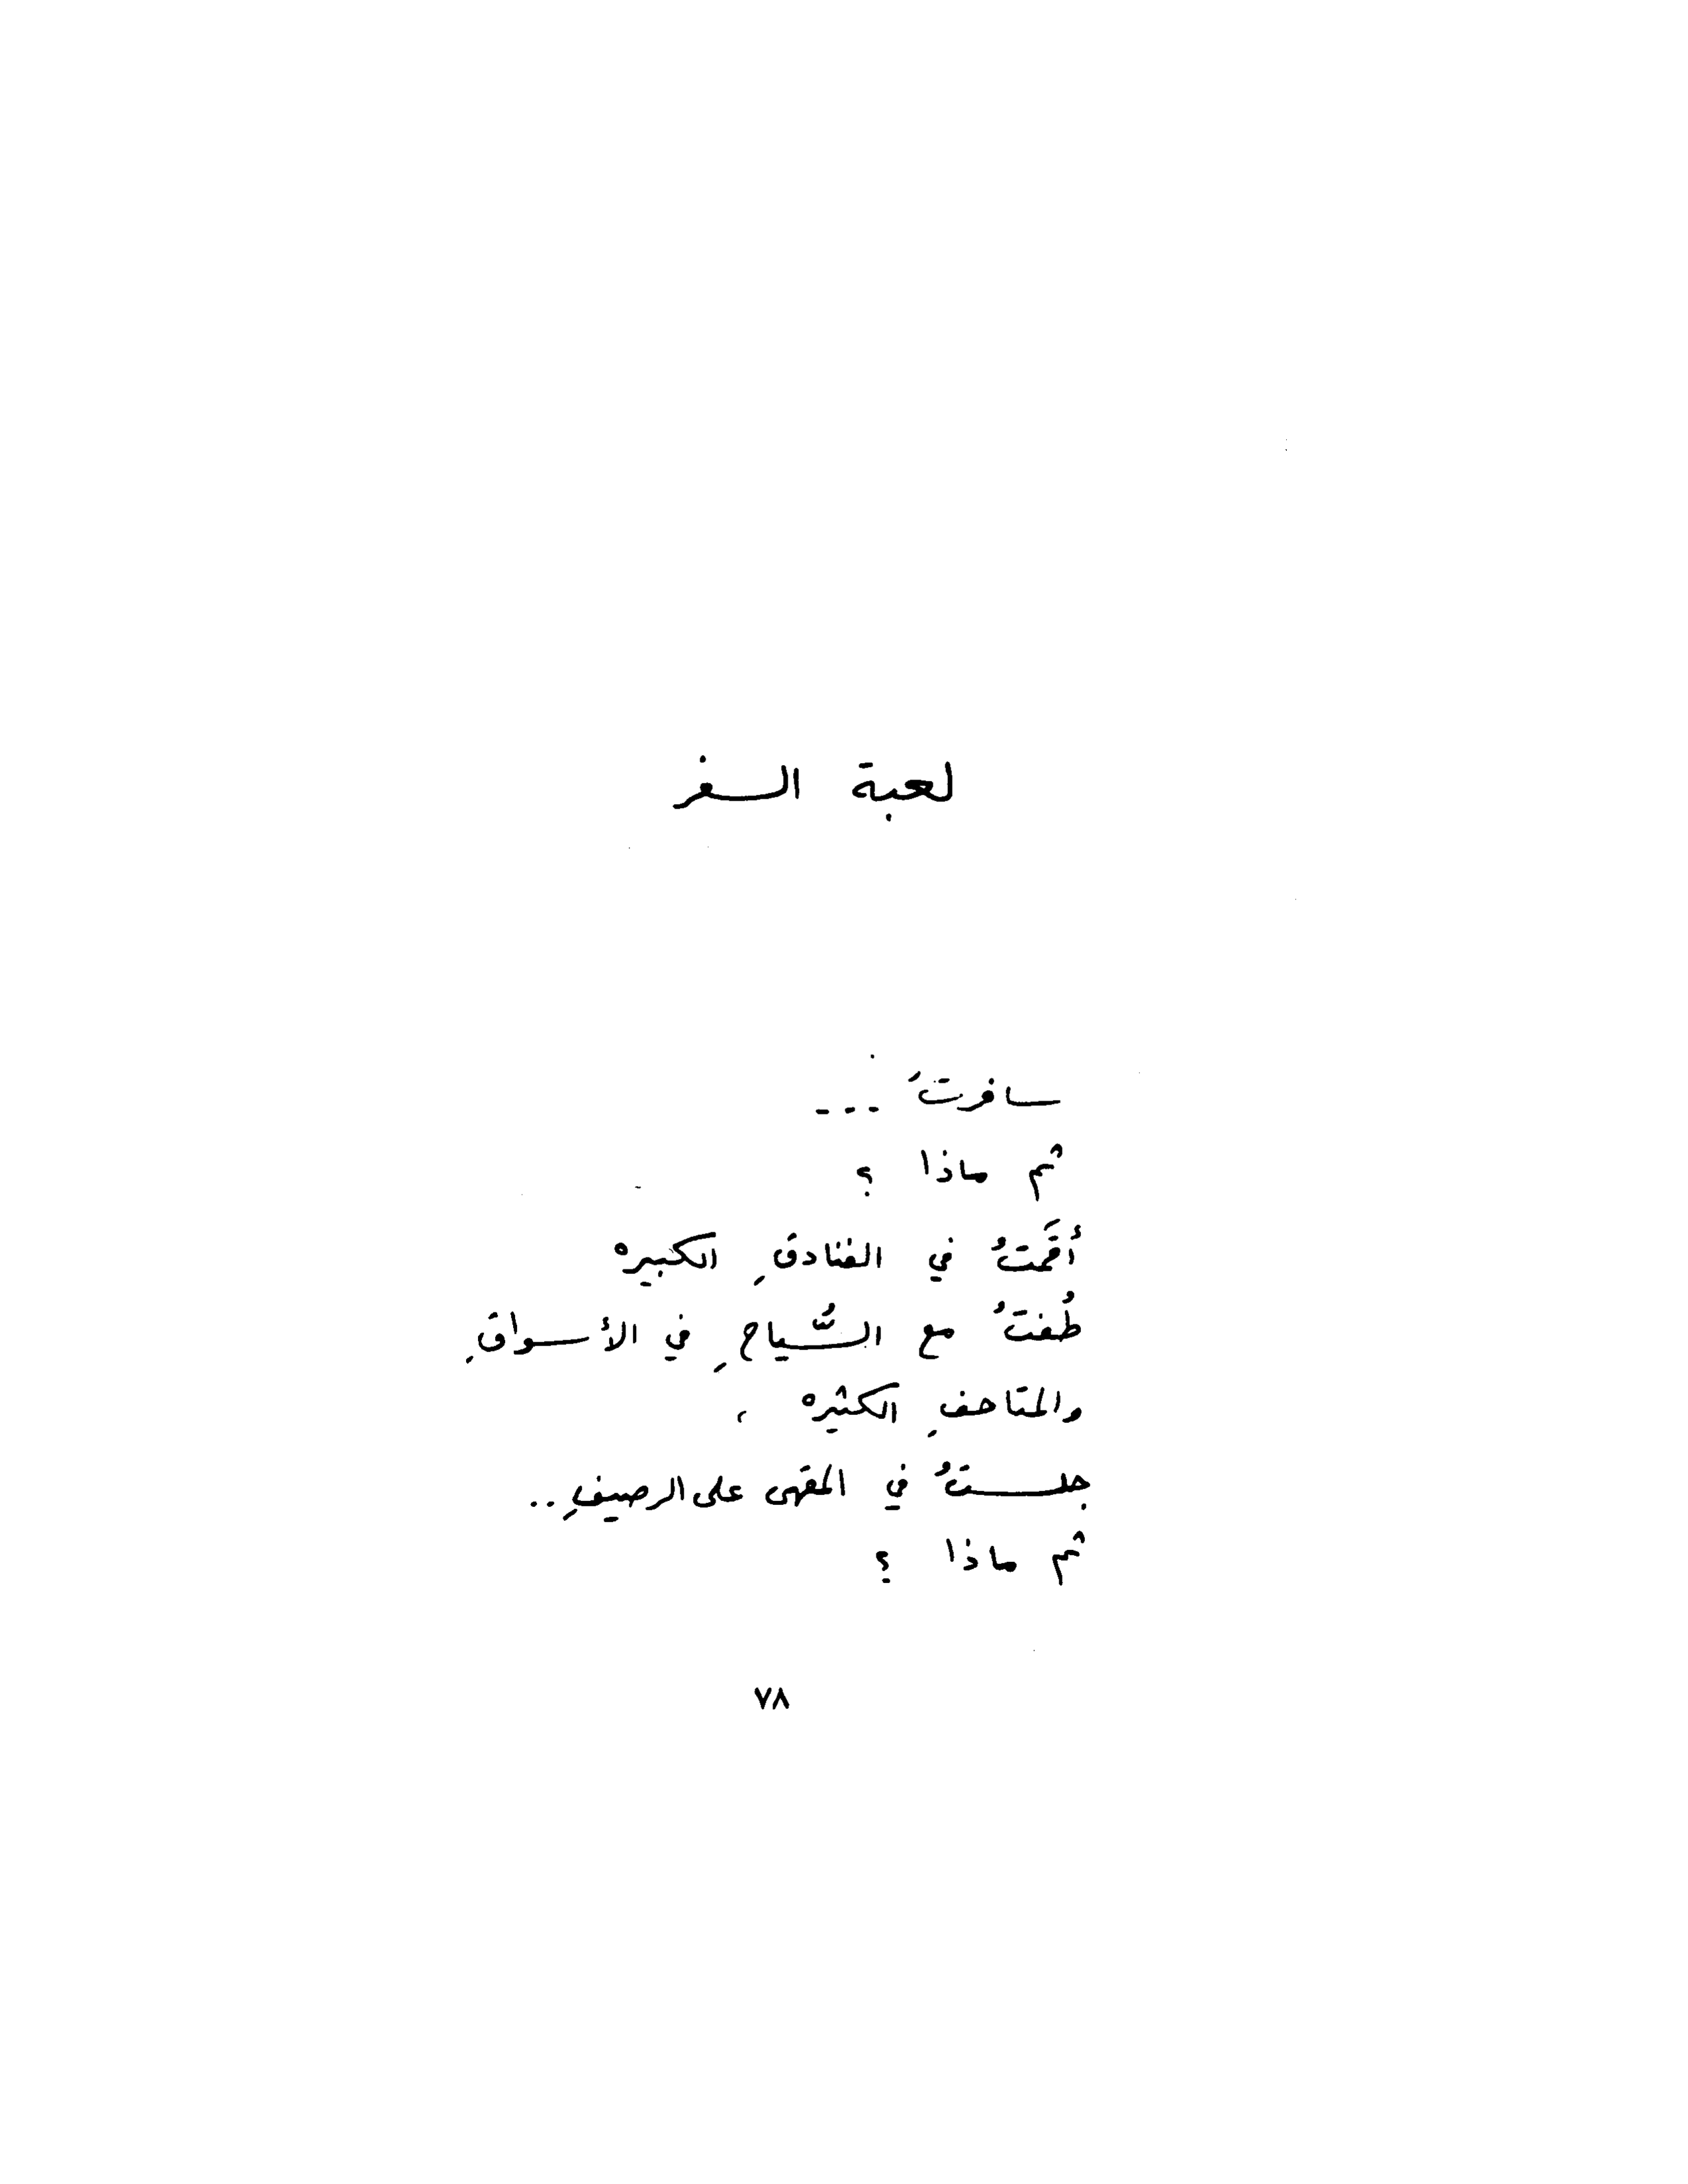 لعبة السفر
سافرتُ ...
ثم ماذا ؟
أُقَمتُ في الفنادقِ الكبيره
طُفتُ مع السُّياحِ في الأسواقِ
والمتاحفِ الكثيره ،
جلستُ في المقهى على الرصيفِ ..
ثم ماذا ؟
٧٨